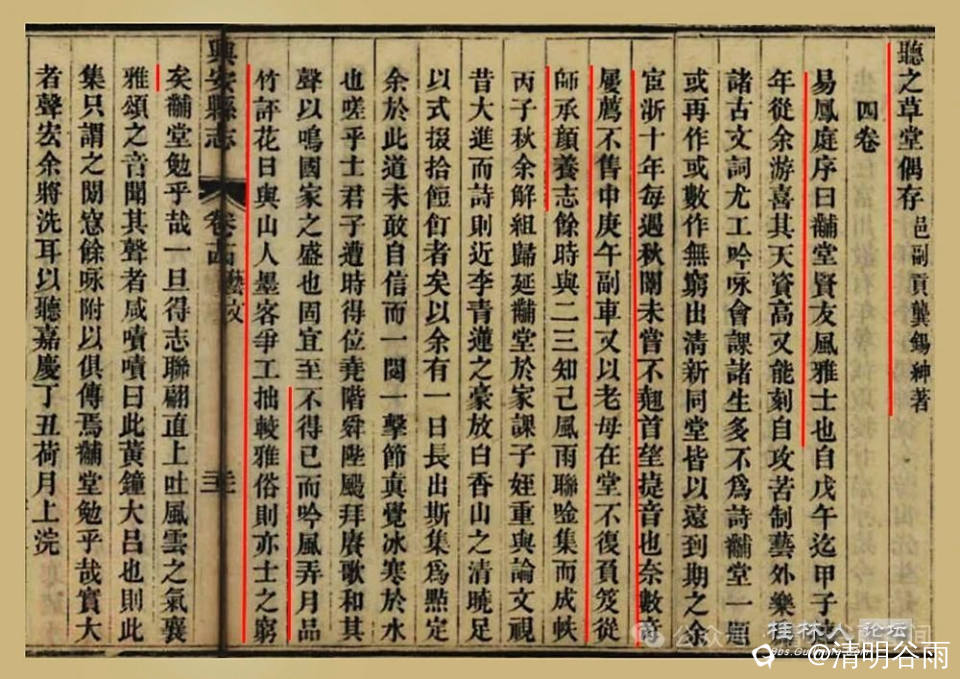 聽之草堂偶存 邑副貢龔錫紳著
四卷
易鳳庭序曰黼堂賢友風雅士也自戊午迄甲子
年從余游喜其天資高又能刻自攻苦制藝外樂
諸古文詞尤工吟咏會課諸生多不爲詩黼堂一題
或再作或數作無窮出清新同堂皆以遠到期之余
宦浙十年每遇秋闈未嘗不翹首望捷音也奈數竒
屢薦不售中庚午副車又以老母在堂不復負笈從
師承顏養志餘時與二三知己風雨聯唫集而成帙
丙子秋余解組歸延黼堂於家課子姪重與論文視
昔大進而詩則近李青蓮之豪放白香山之清曉足
以式掇拾飣飣者矣以余有一日長出斯集爲點定
余於此道未敢自信而一閱一擊節真覺冰寒於水
也嗟乎士君子遭時得位堯階舜陛颺拜賡歌和其
聲以鳴國家之盛也固宜至不得已而吟風弄月品
竹評花日與山人墨客爭工拙較雅俗則亦士之窮
興安縣志 卷十四 藝文 三十一
矣黼堂勉乎哉一旦得志聯翩直上吐風雲之氣襄
雅頌之音聞其聲者咸嘖嘖曰此黃鐘大呂也則此
集只謂之閒窓餘咏附以俱傳焉黼堂勉乎哉實大
者聲宏余將洗耳以聽嘉慶丁丑荷月上浣
公众号
桂林人論坛
@清明谷雨